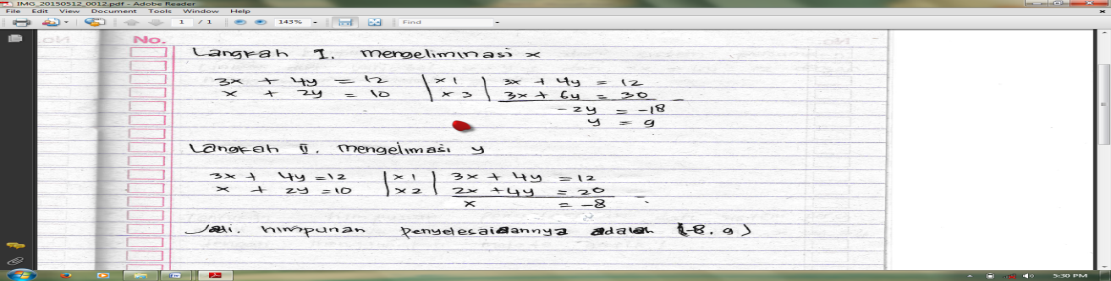 IMG_20150512_0012.pdf - Adobe Reader
File Edit View Document Tools Window Help
1 / 1 143% Find
No.
Langkah I. mengeliminasi x
3x + 4y = 12 | x1 | 3x + 4y = 12
x + 2y = 10 | x3 | 3x + 6y = 30 -
-2y = -18
y = 9
Langkah II. mengelimasi y
3x + 4y = 12 | x1 | 3x + 4y = 12
x + 2y = 10 | x2 | 2x + 4y = 20
x = -8
Jadi. himpunan penyelesaiannya adalah (-8, 9)
5:30 PM